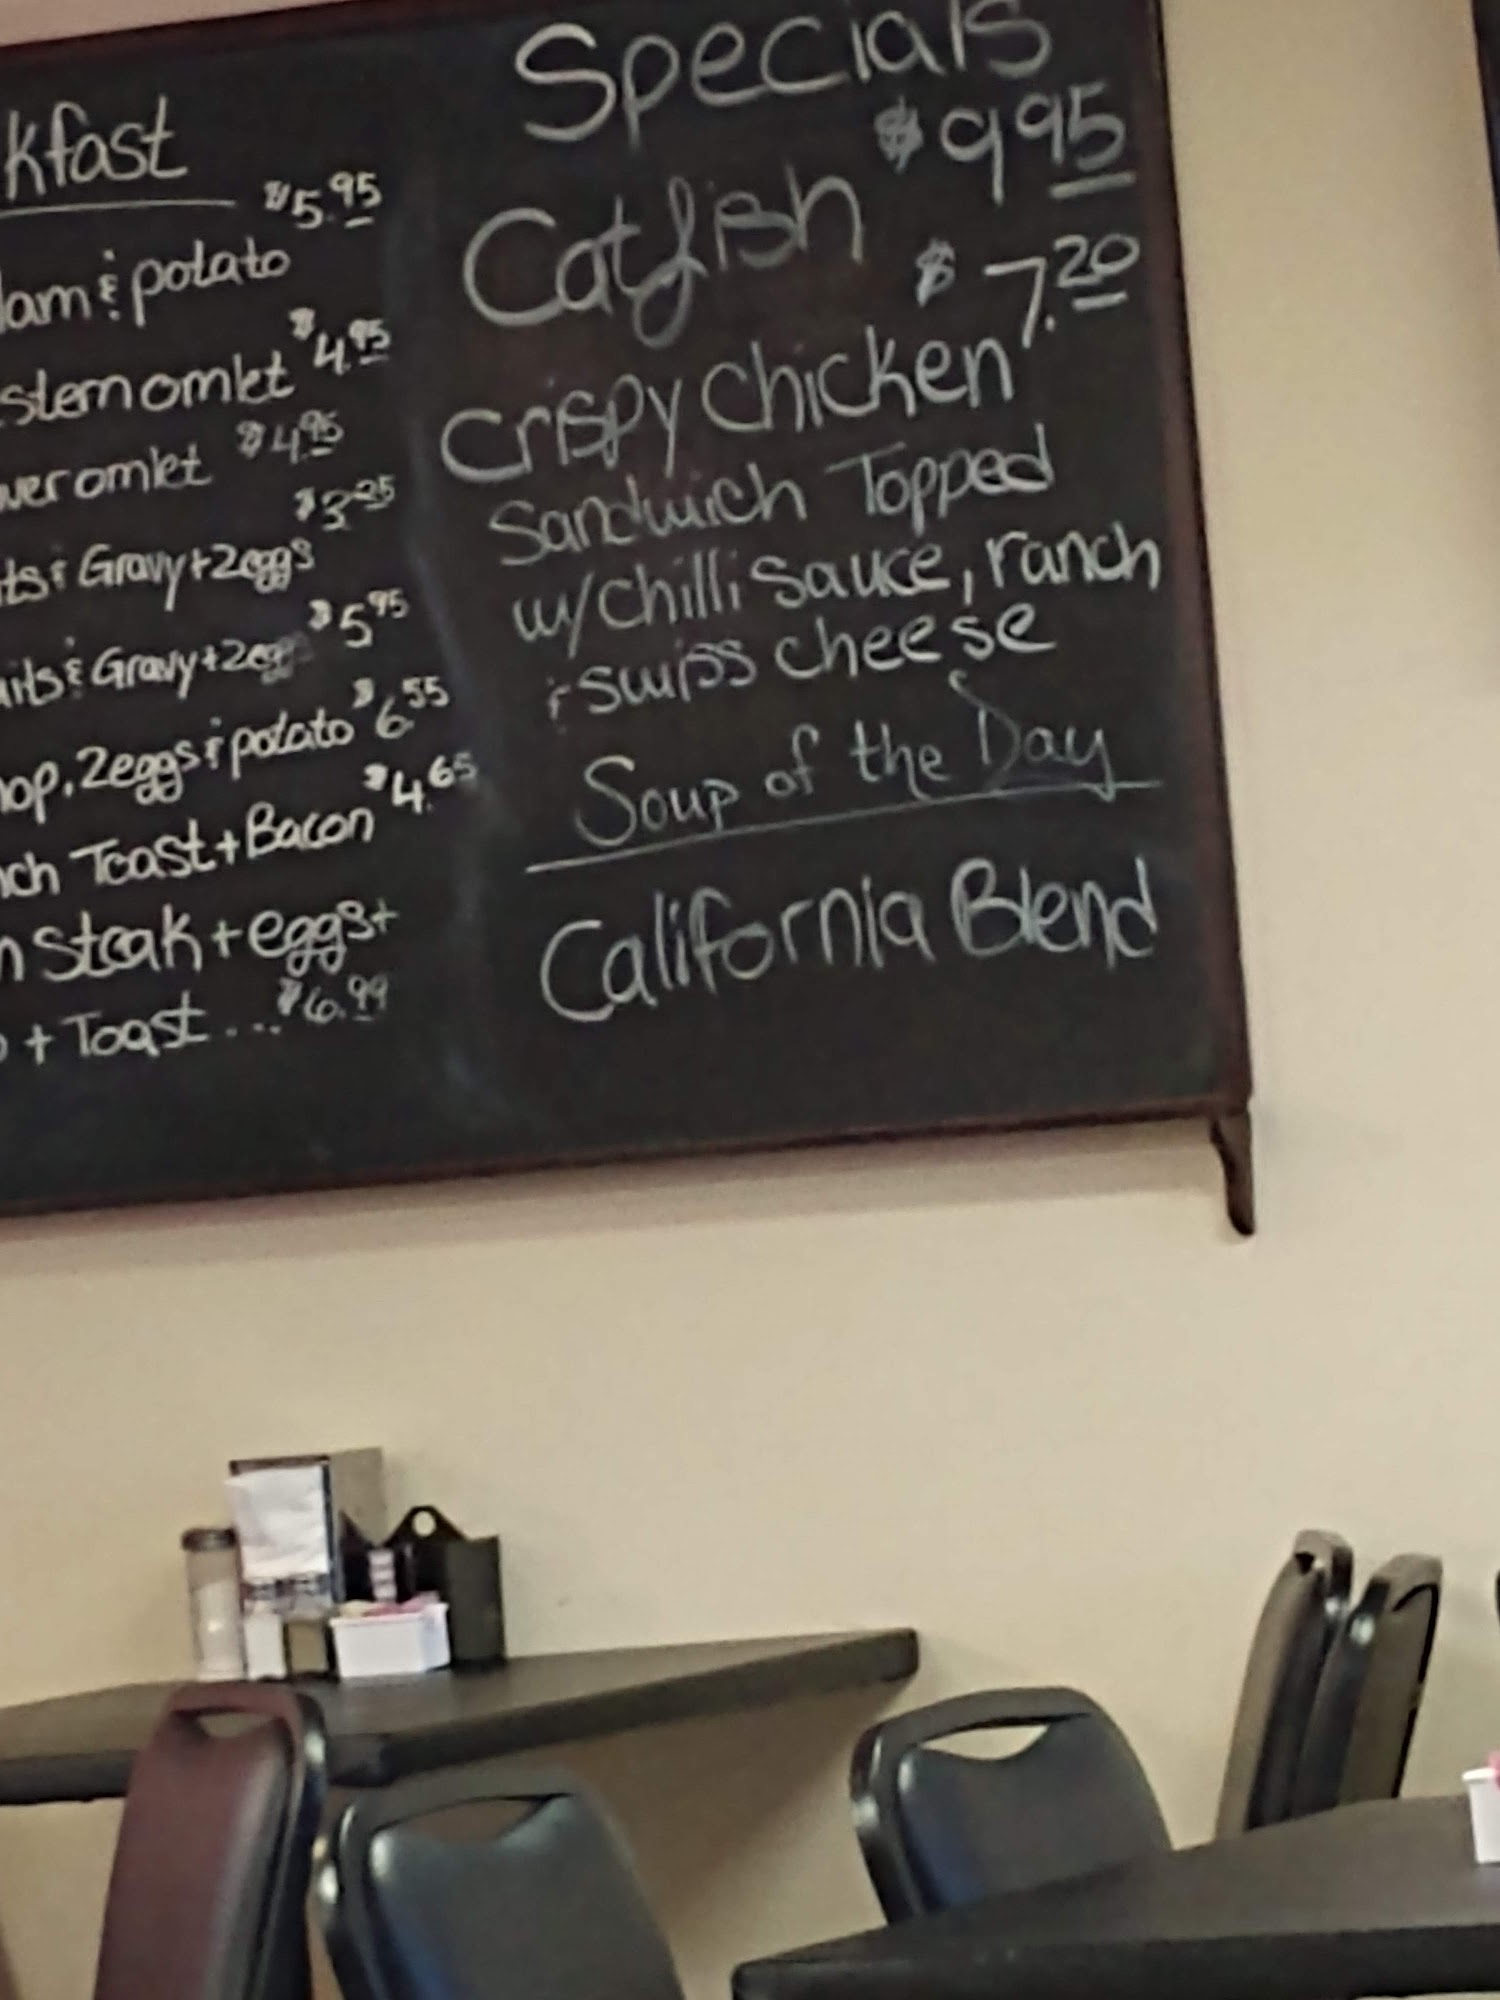 kfast
$5.95
am & potato
$4.95
stern omlet
$4.95
ver omlet
$3.25
ts & Gravy + 2 eggs
$5 95
its & Gravy + 2
$6 55
hop, 2 eggs & potato
$4.65
ch Toast + Bacon
n Steak + eggs +
+ Toast ... $6.99
Specials
$9 95
Catfish
$7.20
Crispy Chicken
Sandwich Topped
w/ chilli sauce, ranch
& swiss cheese
Soup of the Day
California Blend